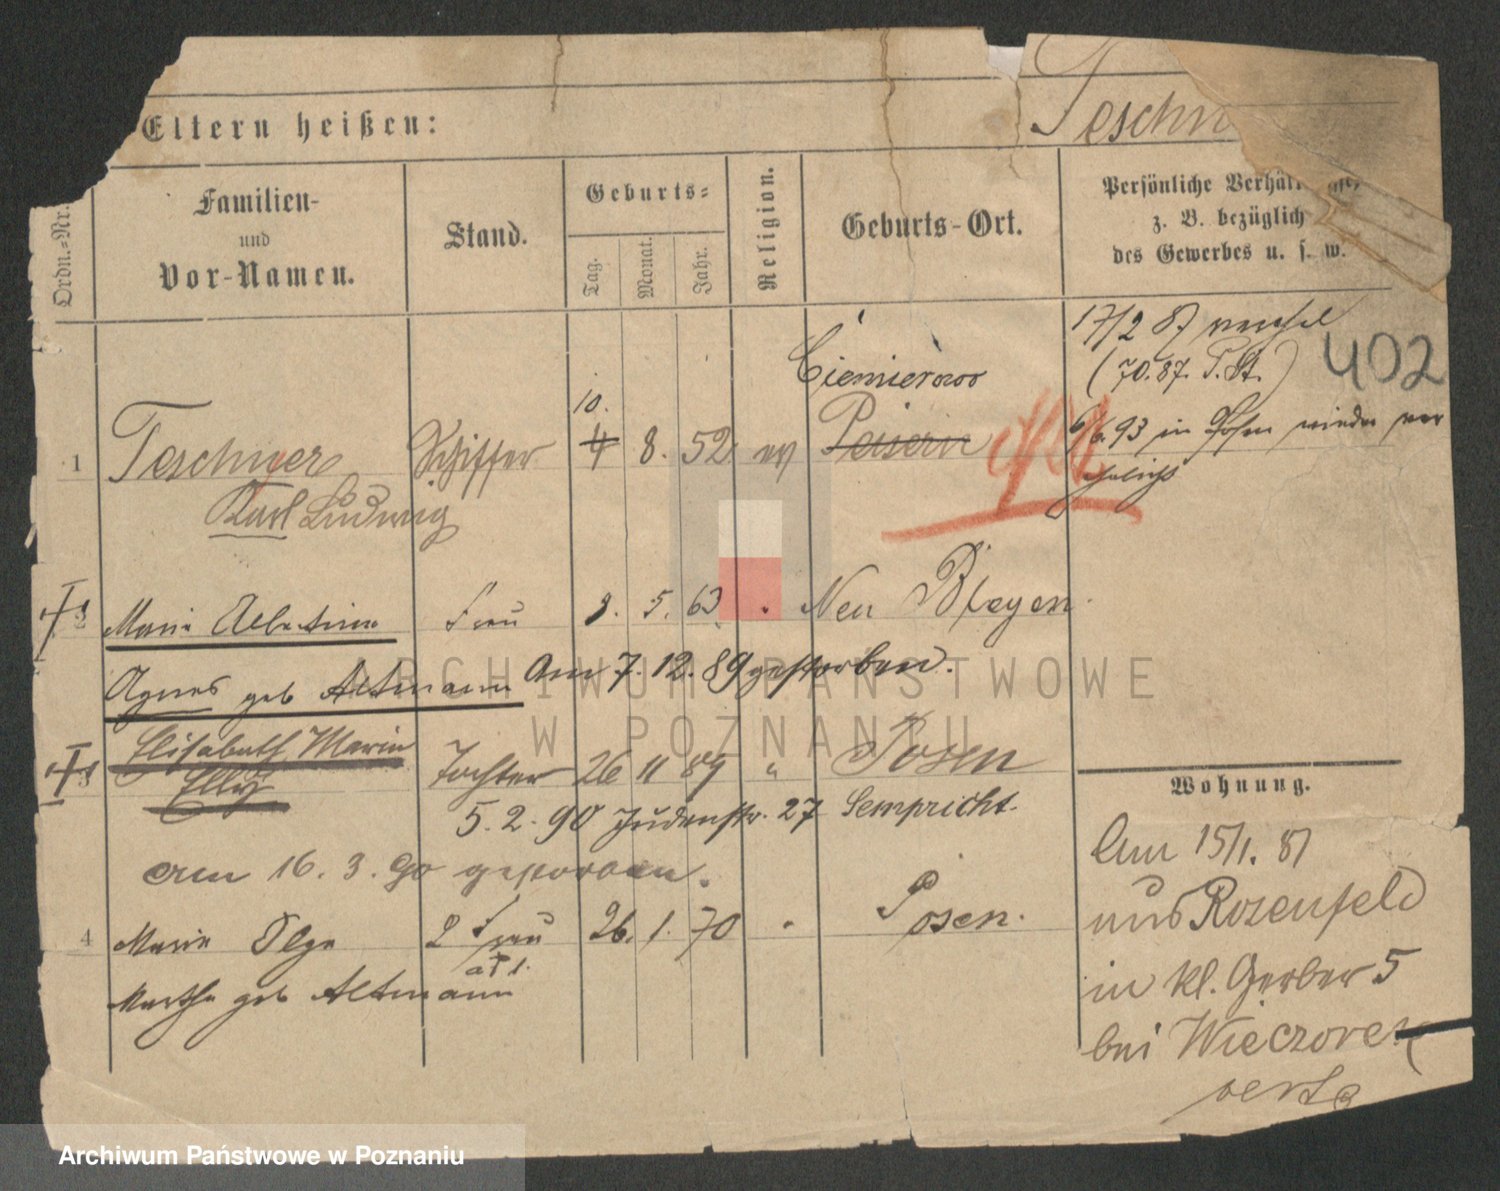 Teschn
Eltern heißen:
Ordn.-Nr.
Familien-
und
Vor-Namen.
Stand.
Geburts-
Tag.
Monat.
Jahr.
Religion.
Geburts-Ort.
Persönliche Verhält
z. B. bezüglich
des Gewerbes u. s. w.
17/2 87
(70.87. P. St.)
402
Ciemierowo
10.
1 Teschner Schiffer 4 8. 52 ev Peisern
6/6. 93 in Posen wieder ver
ehelicht
Karl Ludwig
Marie Albertine Frau 3. 5. 63 Neu Bleyen
Agnes geb Altmann Am 7. 12. 89 gestorben.
Elisabeth Maria
Elly Tochter 26 11 89 " Posen
5. 2. 90 Judenstr. 27 Sempricht.
am 16. 3. 90 gestorben.
4 Marie Olga 2 Frau 26. 1. 70 Posen.
Martha geb Altmann
Wohnung.
Am 15/1. 87
aus Rosenfeld
in kl. Gerber 5
bei Wieczorek
verte
ARCHIWUM PAŃSTWOWE
W POZNANIU
Archiwum Państwowe w Poznaniu